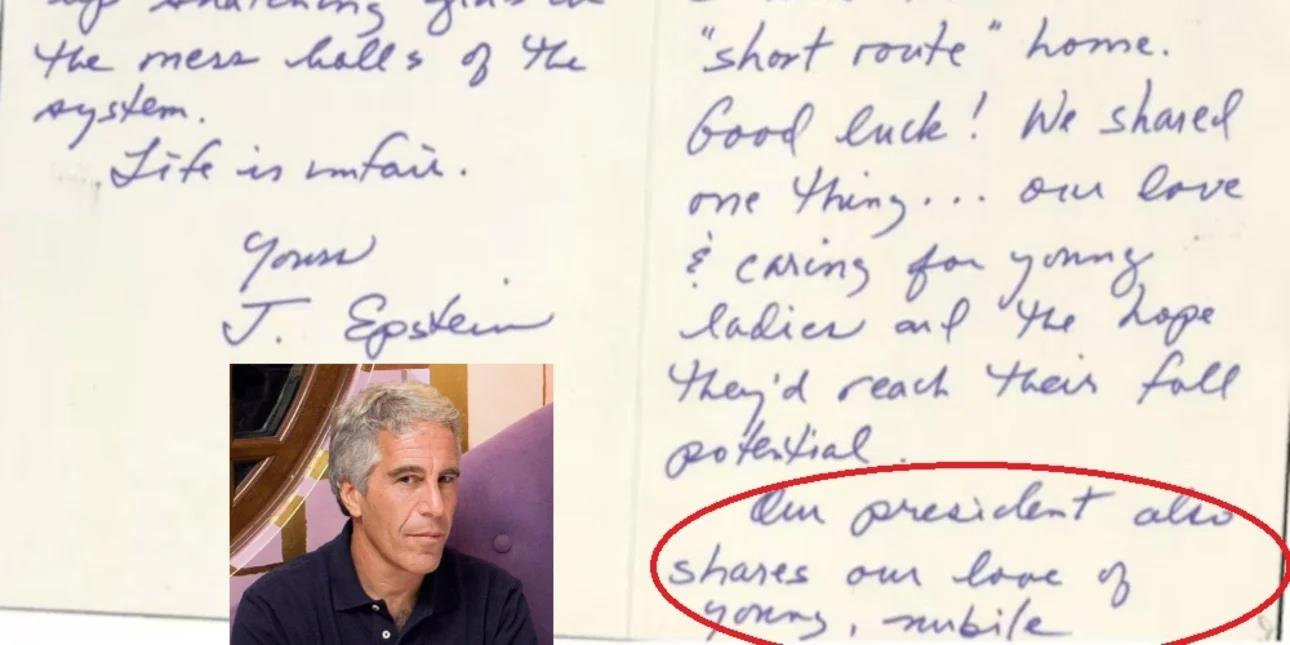 up snatching grub in
the mess halls of the
system.
Life is unfair.
Yours
J. Epstein
"short route" home.
Good luck! We shared
one thing... our love
& caring for young
ladies and the hope
they'd reach their full
potential.
Our president also
shares our love of
young, nubile